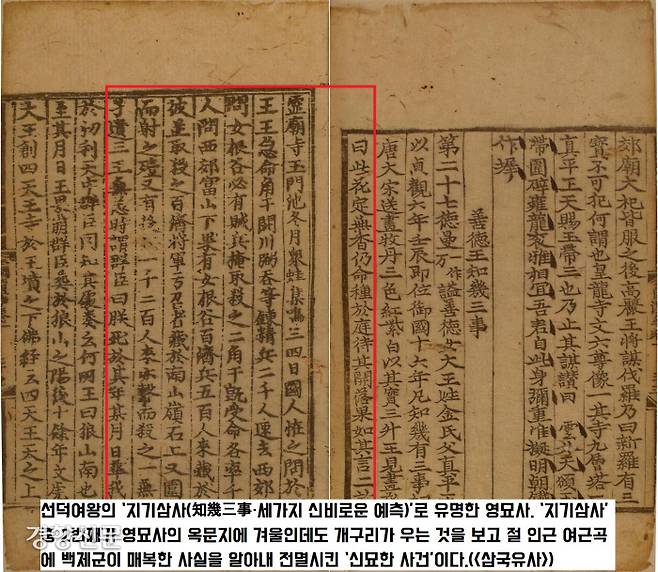 郊廟大祀皆服之後高麗王將謀伐羅乃曰新羅有三
寶不可犯何謂也皇龍寺丈六尊像一其寺九層塔二
真平王天賜玉帶三也乃止其謀讚曰 雲外天頒玉
帶圍辟雍龍袞雅相宜吾君自此身彌重准擬明朝鐵
作墀
善德王知幾三事
第二十七德曼一作謚善德女大王姓金氏父真平王
以貞觀六年壬辰即位御國十六年凡知幾有三事初
唐太宗送畫牧丹三色紅紫白以其實三升王見畫
曰此花定無香仍命種於庭待其開落果如其言二
靈廟寺玉門池冬月衆蛙集鳴三四日國人怪之問於
王王急命角干閼川弼呑等鍊精兵二千人速去西郊
問女根谷必有賊兵掩取殺之二角干旣受命各率千
人問西郊富山下果有女根谷百濟兵五百人來藏於
彼並取殺之百濟將軍亐召者藏於南山嶺石上又圍
而射之殪又有後一千二百人來亦擊而殺之一無
孑遺三王無恙時謂群臣曰朕死於某年某月日葬我
於忉利天中群臣罔知其處奏云何所王曰狼山南也
至其月日王果崩群臣葬於狼山之陽後十餘年文虎
大王創四天王寺於王墳之下佛經云四天王天之上
선덕여왕의 '지기삼사(知幾三事·세가지 신비로운 예측)'로 유명한 영묘사. '지기삼사'
중 2번째가 영묘사의 옥문지에 겨울인데도 개구리가 우는 것을 보고 절 인근 여근곡
에 백제군이 매복한 사실을 알아내 전멸시킨 '신묘한 사건'이다.(<삼국유사>)
경향신문